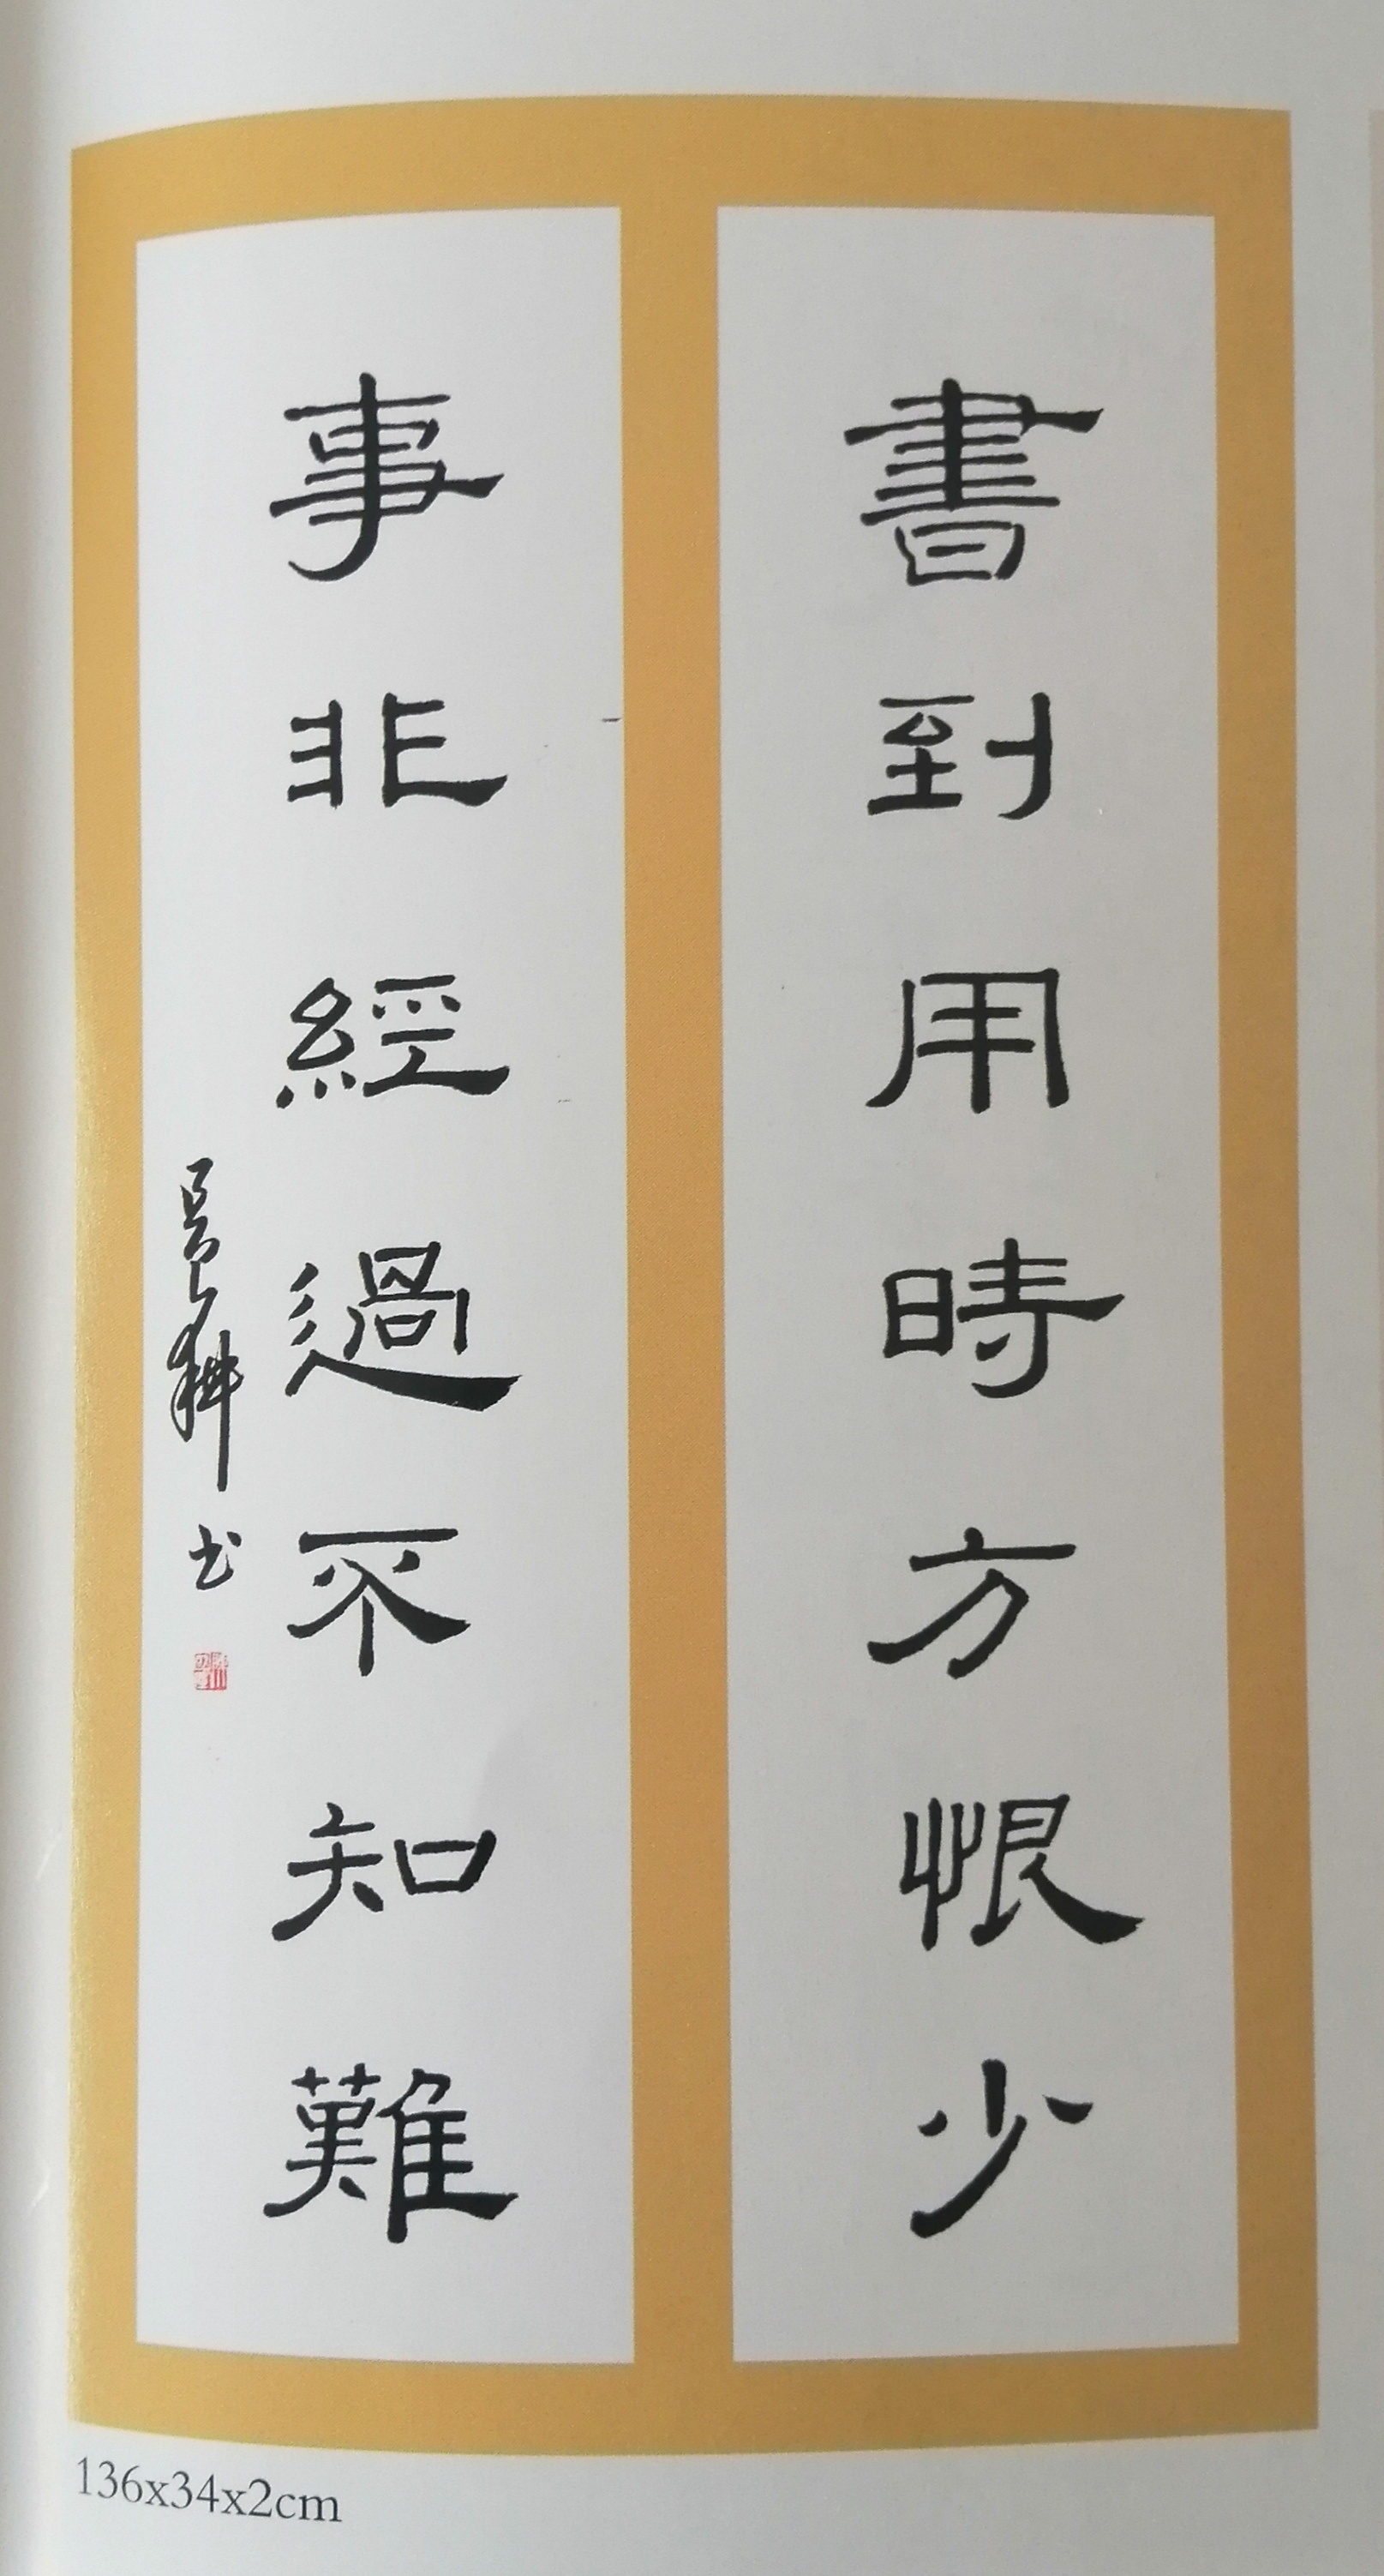 書到用時方恨少
事非經過不知難
136x34x2cm